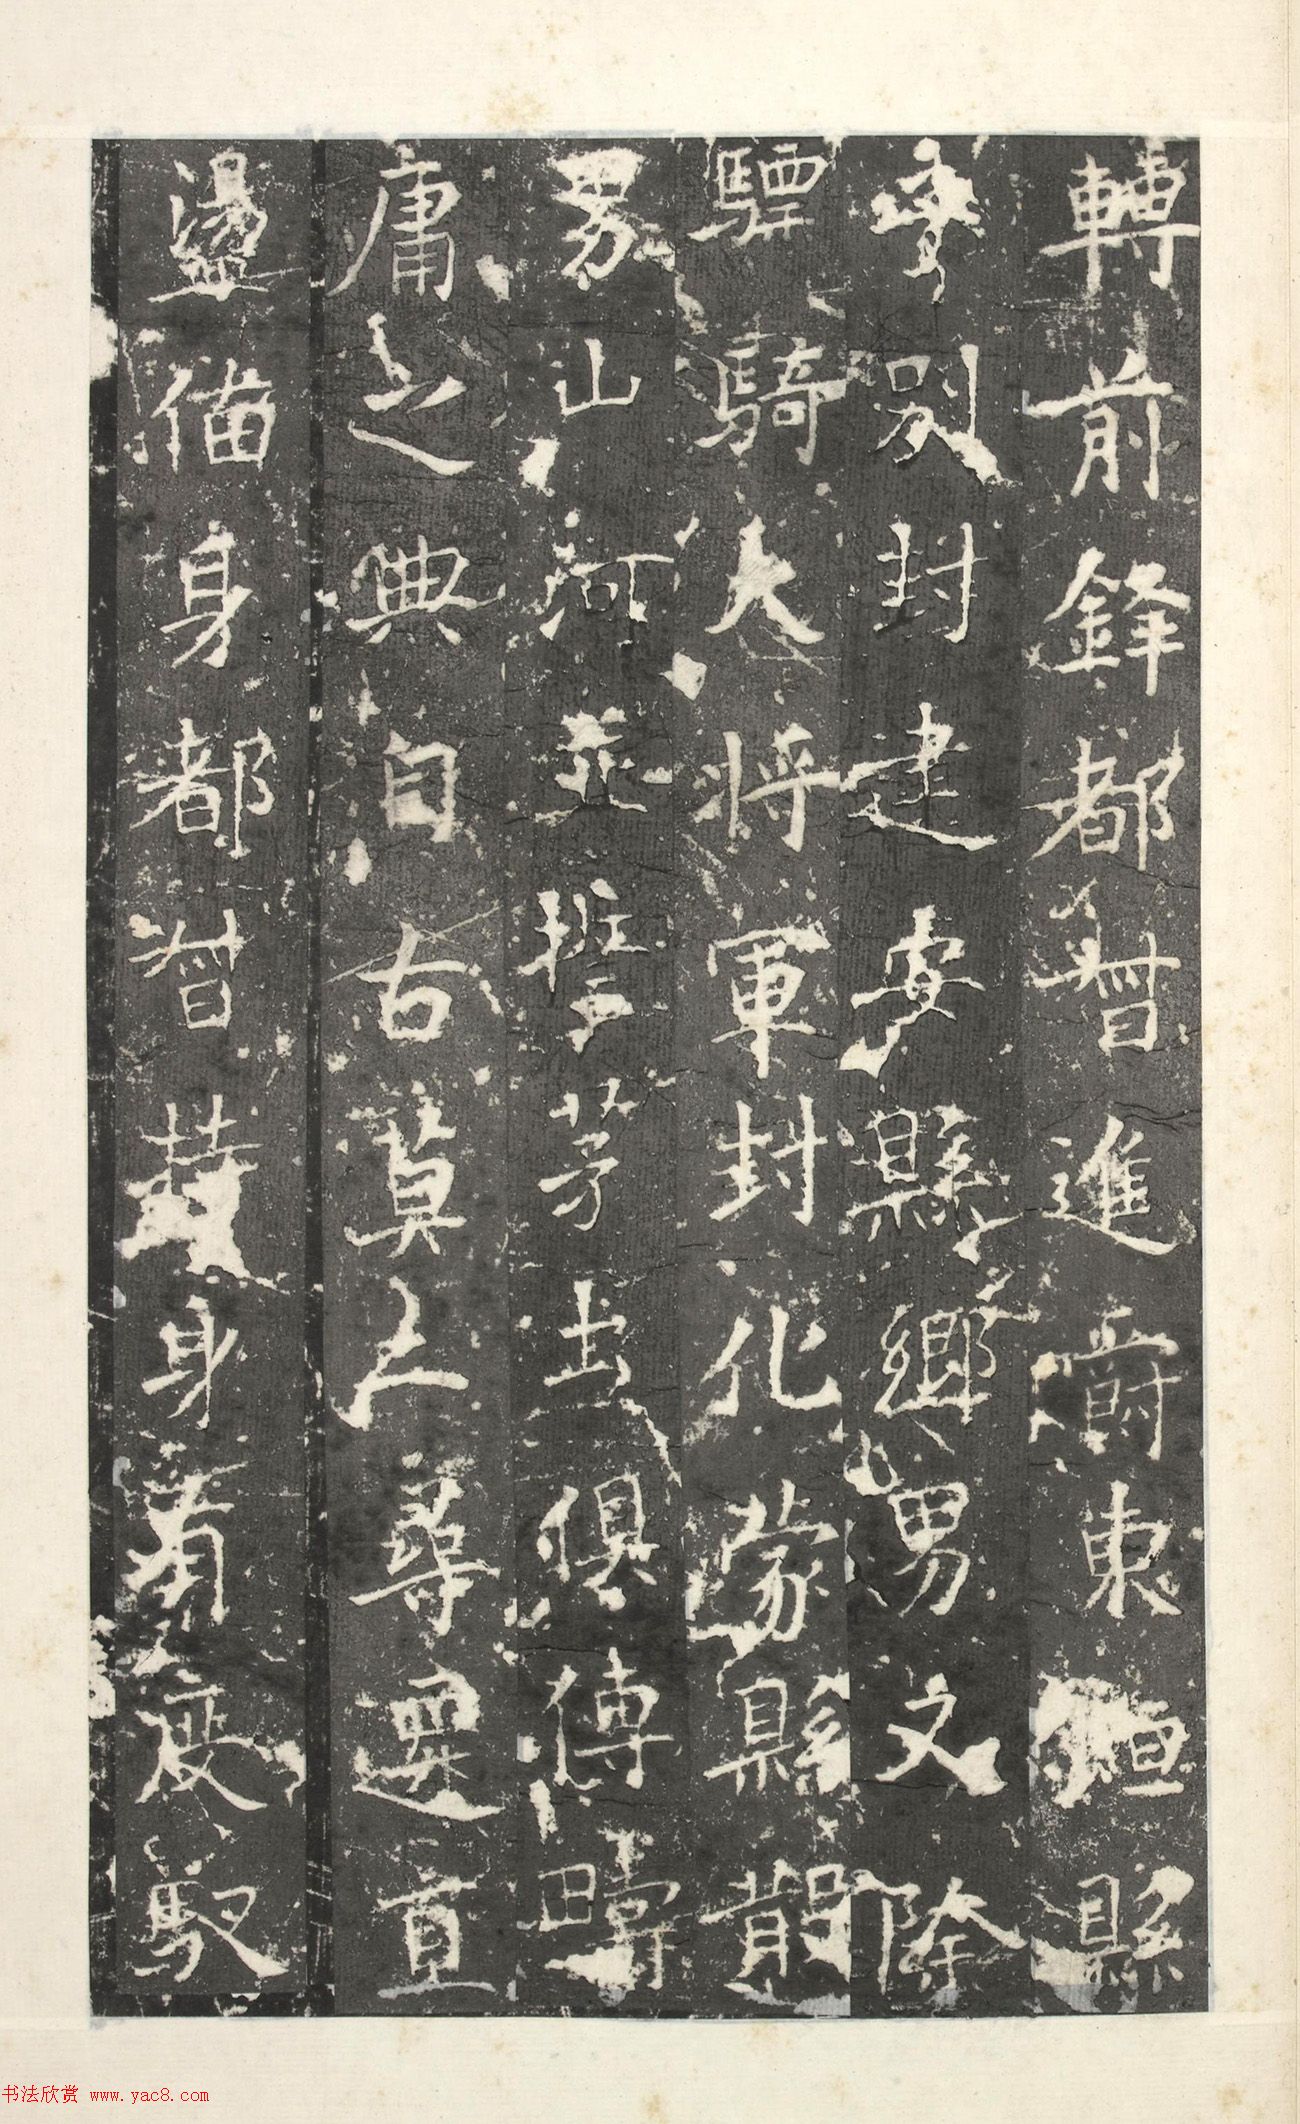 轉前鋒都督進爵東垣縣
別封建安縣鄉男又除
驃騎大將軍封化蒙縣散
男山河並誓茅土俱傳疇
庸之典自古莫上尋遷直
盪備身都督持身有度馭
书法欣赏 www.yac8.com